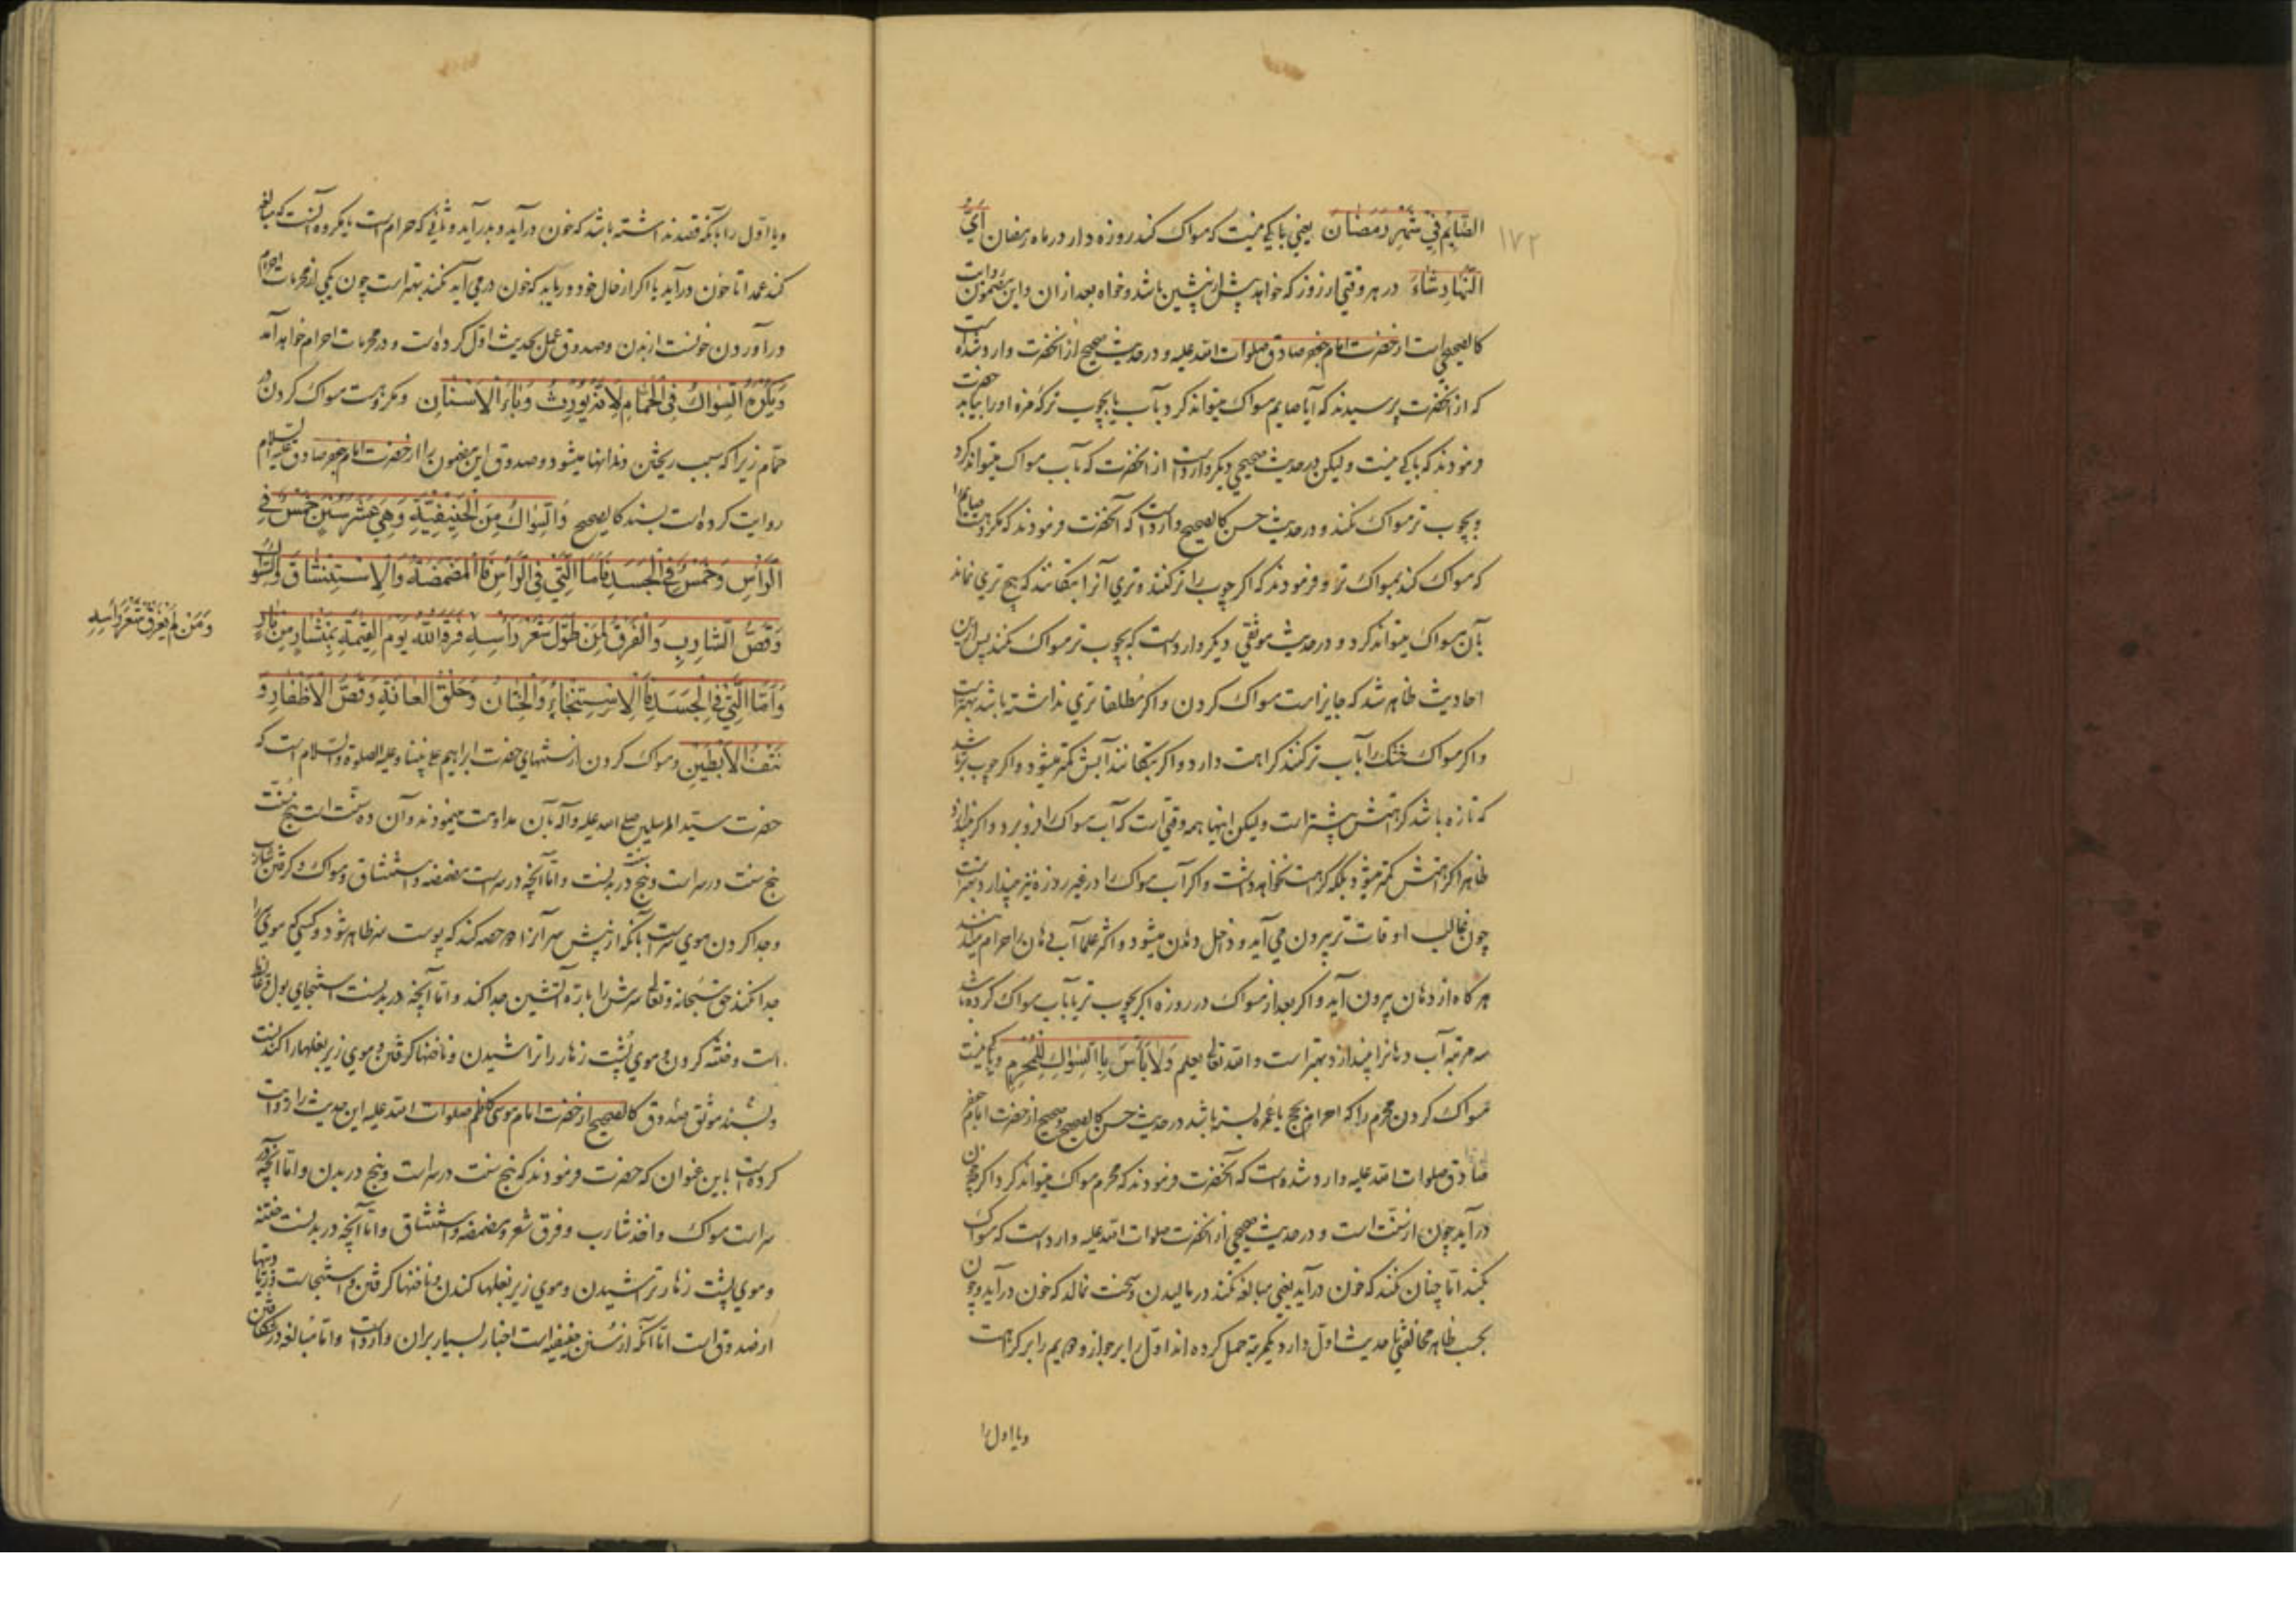 ۱۷۲
الصَّایِمُ فِی شَهْرِ رَمَضَانَ یعنی باکی نیست که مسواک کند روزه دار در ماه رمضان اَیَّ
النَّهَارِ شَاءَ در هر وقتی از روز که خواهد پیش از پیشین باشد و خواه بعد از ان و این مضمون روایت
کالصحیح است از حضرت امام جعفر صادق صلوات الله علیه و در حدیث صحیح از انحضرت وارد شده است
که از انحضرت پرسیدند که آیا صایم مسواک میتواند کرد بآب یا بچوب تر که مزه او را بیابد حضرت
فرمودند که باکی نیست ولیکن در حدیث صحیحی دیگر وارد است از انحضرت که بآب مسواک میتواند کرد
و بچوب تر مسواک نکند و در حدیث حسن کالصحیح وارد است که آنحضرت فرمودند که مکروهست صایم را
که مسواک کند بمسواک تر و فرمودند که اگر چوب را تر کنند و تری آنرا بتکانند که هیچ تری نماند
بآن مسواک میتواند کرد و در حدیث موثقی دیگر وارد است که بچوب تر مسواک نکند پس ازین
احادیث ظاهر شد که جایز است مسواک کردن و اگر مطلقا تری نداشته باشد بهتر است
و اگر مسواک خشک را بآب تر کنند کراهت دارد و اگر بتکانند آبش کمتر میشود و اگر چوب تر باشد
که تازه باشد کراهتش بیشتر است ولیکن اینها همه وقتی است که آب مسواک را فرو برد و اگر بیندازد
ظاهرا کراهتش کمتر میشود بلکه کراهت نخواهد داشت و اگر آب مسواک را در غیر روزه نیز بیندازد بهتر است
چون غالب اوقات تر بیرون می آید و داخل دهن میشود و اکثر علما آب دهان را حرام میدانند
هر گاه از دهان بیرون آید و اگر بعد از مسواک در روزه اگر بچوب تر یا بآب مسواک کرده باشد
سه مرتبه آب دهانرا بیندازد بهتر است و الله تعالی یعلم وَلَا بَأْسَ بِالسِّوَاكِ لِلْمُحْرِمِ و باکی نیست
مسواک کردن محرم را که احرام بحج یا عمره بسته باشد در حدیث حسن کالصحیح و صحیح از حضرت امام جعفر
صادق صلوات الله علیه وارد شده است که آنحضرت فرمودند که محرم مسواک میتواند کرد اگر چه خون
درآید چون از سنت است و در حدیث صحیحی از انحضرت صلوات الله علیه وارد است که مسواک
بکند اما چنان نکند که خون درآید یعنی مبالغه نکند در مالیدن و سخت نمالد که خون درآید و چون
بحسب ظاهر مخالفتی با حدیث اول دارد یکمرتبه حمل کرده اند اول را بر جواز و دویم را بر کراهت
و یا اول را
و یا اول را بآنکه قصد نداشته باشد که خون درآید و بدرآید و ثانی که حرام است یا مکروه آنست که مبالغه
کند عمدا تا خون درآید یا اگر از حال خود دریابد که خون درمی آید نکند بهتر است چون یکی از محرمات احرام
درآوردن خونست از بدن و صدوق عمل بحدیث اول کرده است و در محرمات احرام خواهد آمد
وَیُکْرَهُ السِّوَاكُ فِی الْحَمَّامِ لِاَنَّهُ یُورِثُ وَبَاءَ الْاَسْنَانِ و مکروهست مسواک کردن در
حمام زیرا که سبب ریختن دندانها میشود و صدوق این مضمون را از حضرت امام جعفر صادق علیه السلام
روایت کرده است بسند کالصحیح وَالسِّوَاكُ مِنَ الْحَنِیفِیَّةِ وَهِیَ عَشْرُ سُنَنٍ خَمْسٌ فِی
الرَّأْسِ وَخَمْسٌ فِی الْجَسَدِ فَاَمَّا الَّتِی فِی الرَّأْسِ فَالْمَضْمَضَةُ وَالْاِسْتِنْشَاقُ وَالسِّوَاكُ
وَقَصُّ الشَّارِبِ وَالْفَرْقُ لِمَنْ طَوَّلَ شَعْرَ رَأْسِهِ فَرَقَهُ اللّٰهُ یَوْمَ الْقِیٰمَةِ بِمِنْشَارٍ مِنْ نَارٍ
وَمَنْ لَمْ یَفْرُقْ شَعْرَ رَأْسِهِ
وَاَمَّا الَّتِی فِی الْجَسَدِ فَالْاِسْتِنْجَاءُ وَالْخِتَانُ وَحَلْقُ الْعَانَةِ وَقَصُّ الْاَظْفَارِ وَ
نَتْفُ الْاِبْطَیْنِ و مسواک کردن از سنتهای حضرت ابراهیم علی نبینا و علیه الصلوة و السلام است که
حضرت سید المرسلین صلی الله علیه و آله بآن مداومت مینمودند و آن ده سنت است پنج سنت
پنج سنت در سر است و پنج سنت در بدنست و اما آنچه در سر است مضمضه و استنشاق و مسواک و گرفتن شارب
و جدا کردن موی سر است بآنکه از پیش سر آنرا دو حصه کند که پوست سر ظاهر شود و کسی که موی را
جدا نکند حق سبحانه و تعالی سرش را باره آتشین جدا کند و اما آنچه در بدنست استنجای بول و غایط
است و ختنه کردن و موی پشت زهار را تراشیدن و ناخنها گرفتن و موی زیر بغلها را کندنست
و بسند موثق صدوق کالصحیح از حضرت امام موسی کاظم صلوات الله علیه این حدیث را روایت
کرده است باین عنوان که حضرت فرمودند که پنج سنت در سر است و پنج در بدن و اما آنچه در
سر است مسواک و اخذ شارب و فرق شعر و مضمضه و استنشاق و اما آنچه در بدنست ختنه
و موی پشت زهار تراشیدن و موی زیر بغلها کندن و ناخنها گرفتن و استنجاست
از صدوق است اما آنکه از سنن حنیفیه است اخبار بسیار بران وارد است و اما مبالغه در